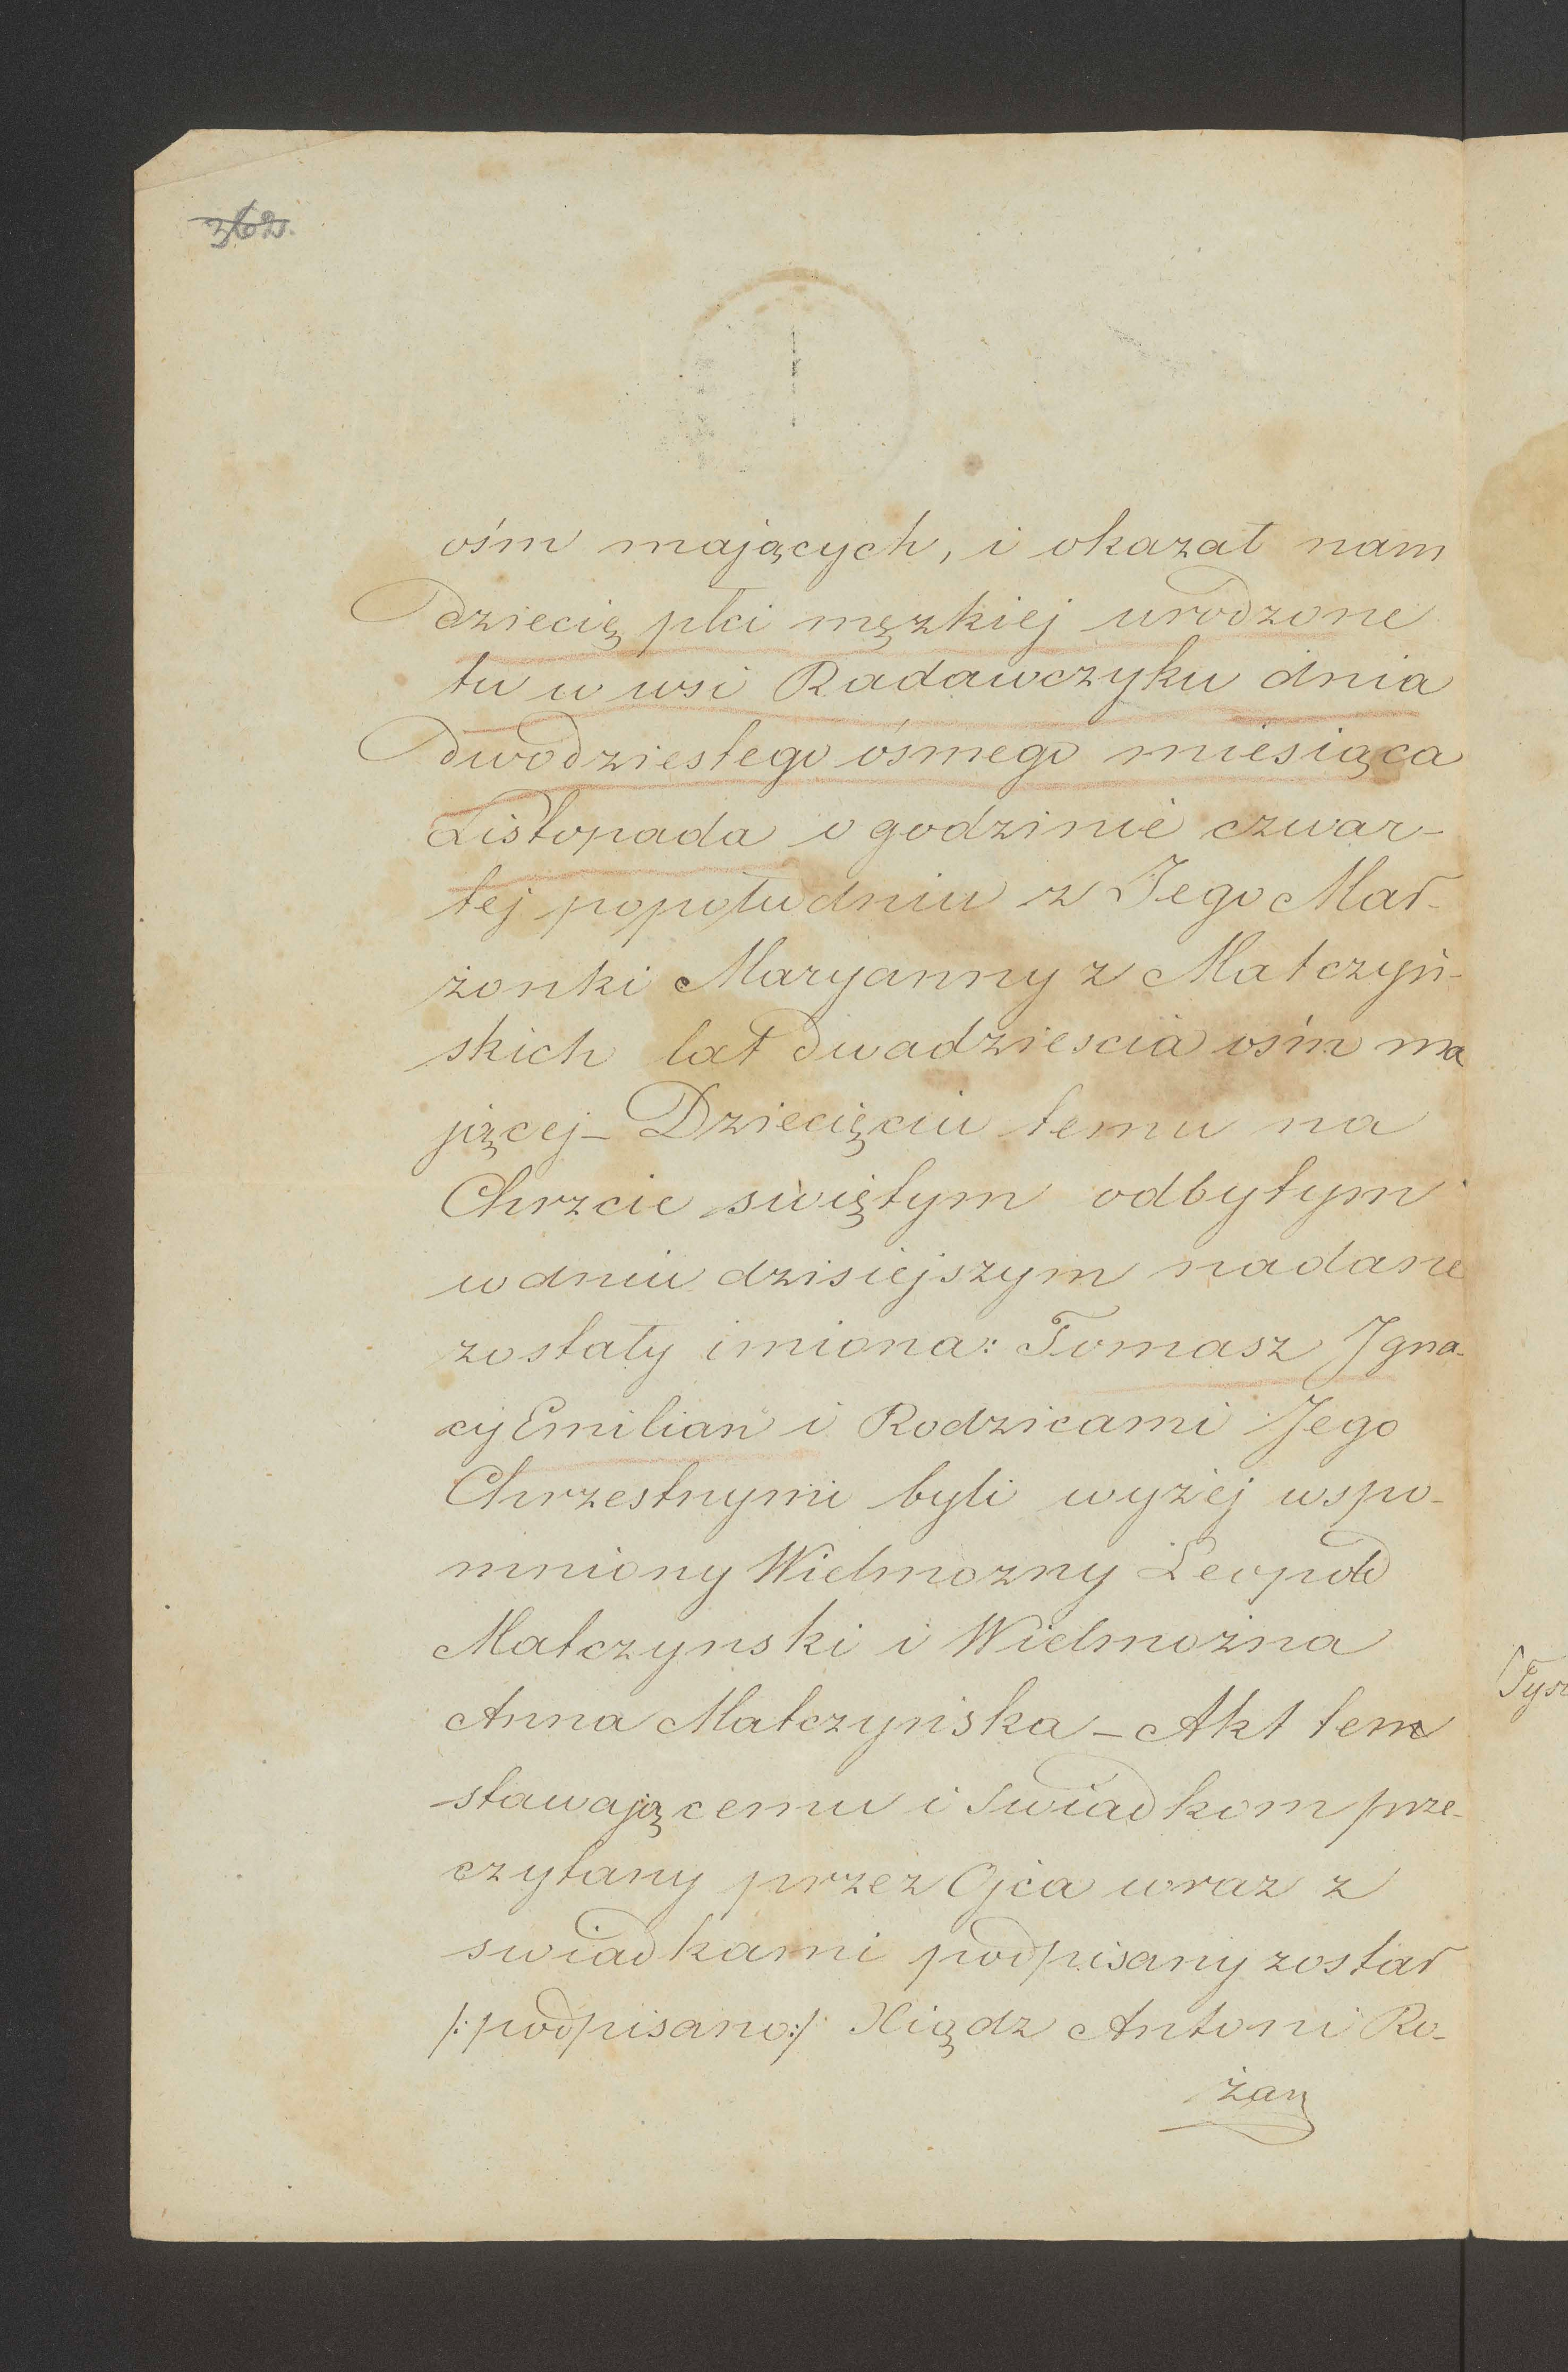 362.
ośm mających, i okazał nam
dziecię płci męzkiej urodzone
tu w wsi Radawczyku dnia
dwódziestego ósmego miesiąca
Listopada o godzinie czwar-
tej popołudniu z Jego Mał-
żonki Maryanny z Matczyń-
skich lat dwadziescia ośm ma
jącej - Dziecięciu temu na
Chrzcie swiętym odbytym
w dniu dzisiejszym nadane
zostały imiona: Tomasz Igna-
cy Emilian i Rodzicami Jego
Chrzestnymi byli wyżej wspo-
mniony Wielmozny Leopold
Matczynski i Wielmożna
Anna Matczyńska - Akt ten
stawającemu i swiadkom prze-
czytany przez Ojca wraz z
swiadkami podpisany został
/: podpisano :/ Xiądz Antoni Ro-
żan
Tys